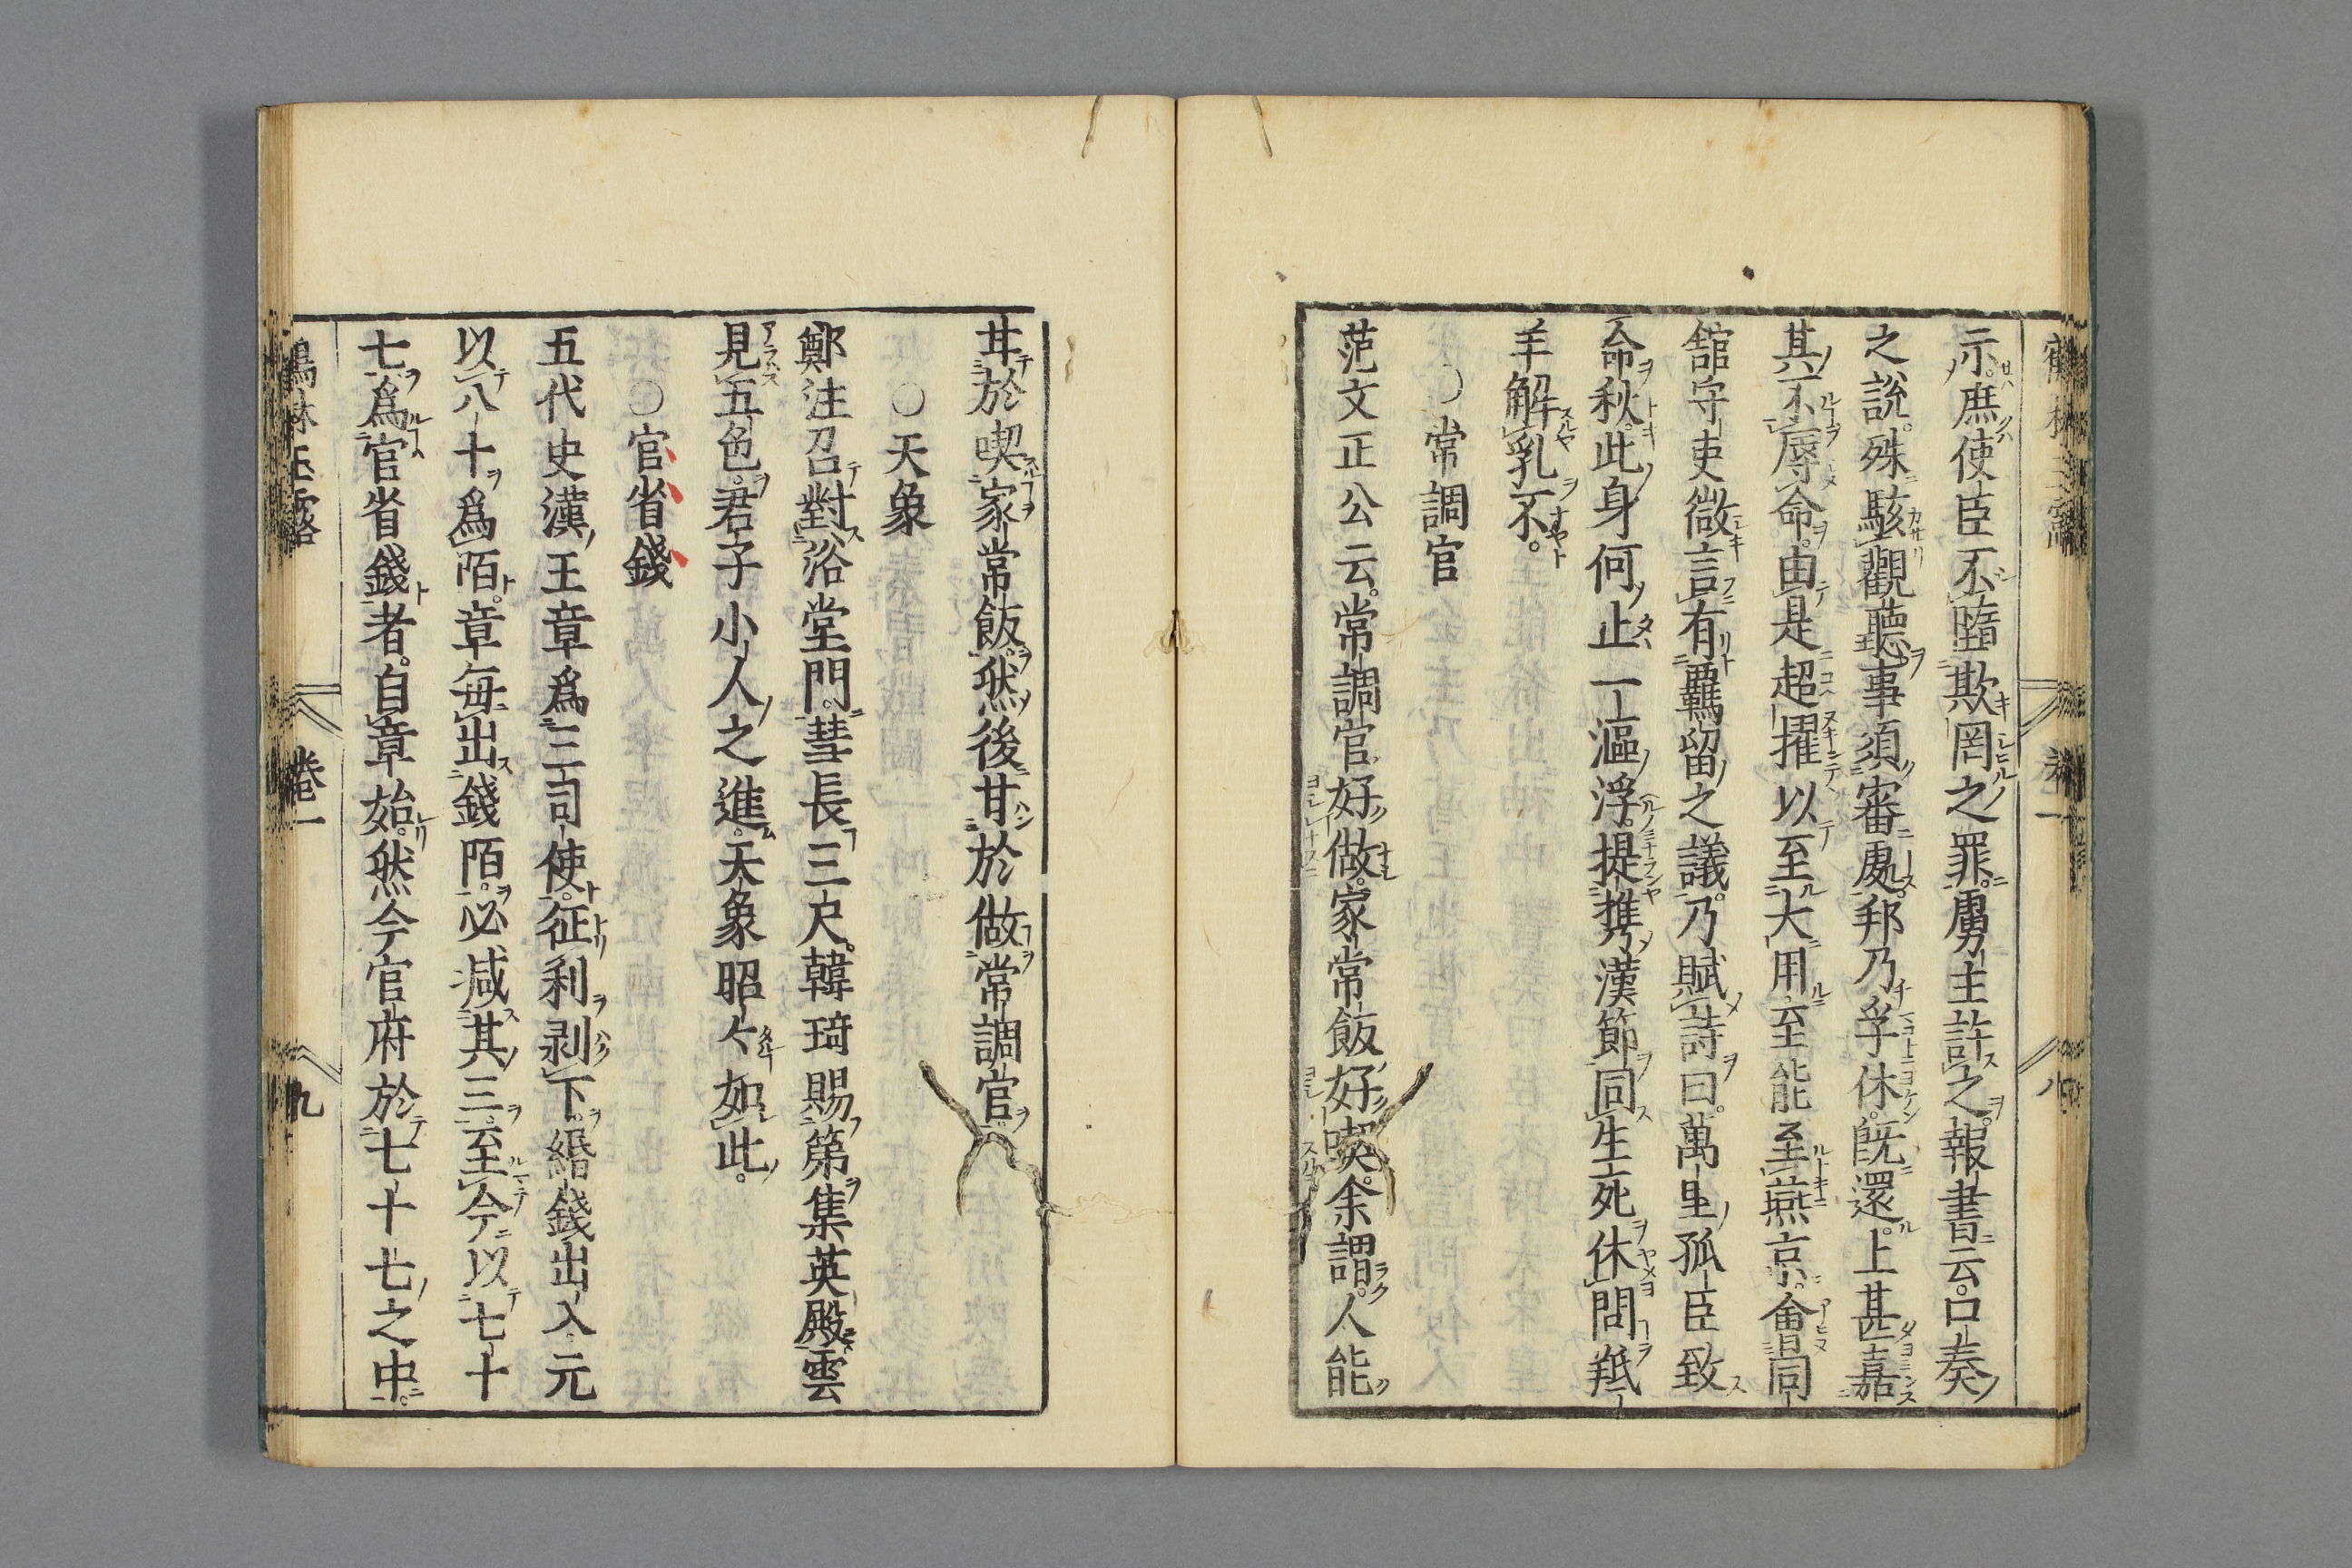 示庶使臣不墮欺罔之罪虜主許之報書云口奏
之說殊駭觀聽事須審處邦乃孚休旣還上甚嘉
其不辱命由是超擢以至大用至能至燕京會同
舘守吏微言有羈留之議乃賦詩曰萬里孤臣致
命秋此身何止一漚浮提攜漢節同生死休問羝
羊解乳不
〇常調官
范文正公云常調官好做家常飯好喫余謂人能
甘於喫家常飯然後甘於做常調官
〇天象
鄭注召對浴堂門彗長三尺韓琦賜第集英殿雲
見五色君子小人之進天象昭々如此
〇官省錢
五代史漢王章爲三司使征利剥下緡錢出入元
以八十爲陌章每出錢陌必减其三至今以七十
七爲官省錢者自章始然今官府於七十七之中
鶴林玉露 卷一 九